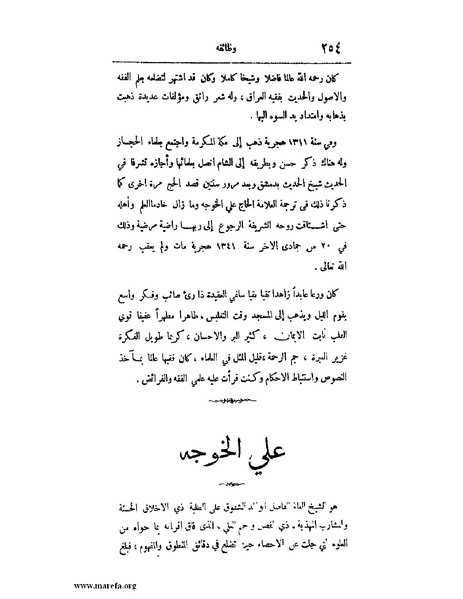 ٢٥٤
وظائفه
كان رحمه الله عالما فاضلا وشيخا كاملا وكان قد اشتهر لتضلعه بعلم الفقه
والاصول والحديث بفقيه العراق ، وله شعر رائق ومؤلفات عديدة ذهبت
بذهابه وامتداد يد السوء اليها .
وفي سنة ١٣١١ هجرية ذهب الى مكة المكرمة واجتمع بعلماء الحجاز
وله هناك ذكر حسن وبطريقه الى الشام اتصل بعلمائها وأجازه تشرفا في
الحديث شيخ الحديث بدمشق وبعد مرور سنتين قصد الحج مرة اخرى كما
ذكرنا ذلك في ترجمة العلامة الحاج علي الخوجه وما زال خادما للعلم وأهله
حتى اشتاقت روحه الشريفة الرجوع الى ربها راضية مرضية وذلك
في ٢٠ من جمادى الاخر سنة ١٣٤١ هجرية مات ولم يعقب رحمه
الله تعالى .
كان ورعا عابداً زاهدا تقيا نقيا سلفي العقيدة ذا رئ صائب وفكر واسع
يقوم الليل ويذهب الى المسجد وقت التغليس . طاهرا مطهراً عفيفا قوي
القلب ثابت الايمان ، كثير البر والاحسان ، كريما طويل الفكرة
غزير العبرة ، جم الرحمة ، قليل المثل في العلماء ، كان فقيها عالما بمآخذ
النصوص واستنباط الاحكام وكنت قرأت عليه علمي الفقه والفرائض .
علي الخوجه
هو الشيخ العالم الفاضل الشفوق على الطلبة ذي الاخلاق الحسنة
والمشارب المهذبة . ذي الفضل الذي فاق اقرانه بما حواه من
العلوم التي جلت عن الاحصاء حيث تضلع في دقائق المنطوق والمفهوم ، فبلغ
www.marefa.org